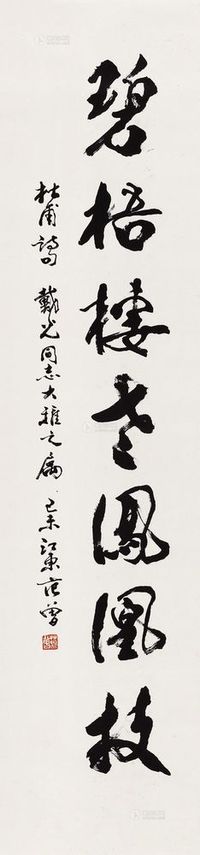 碧梧棲老鳳凰枝
杜甫詩句 戴光同志大雅之屬 己未江東范曾